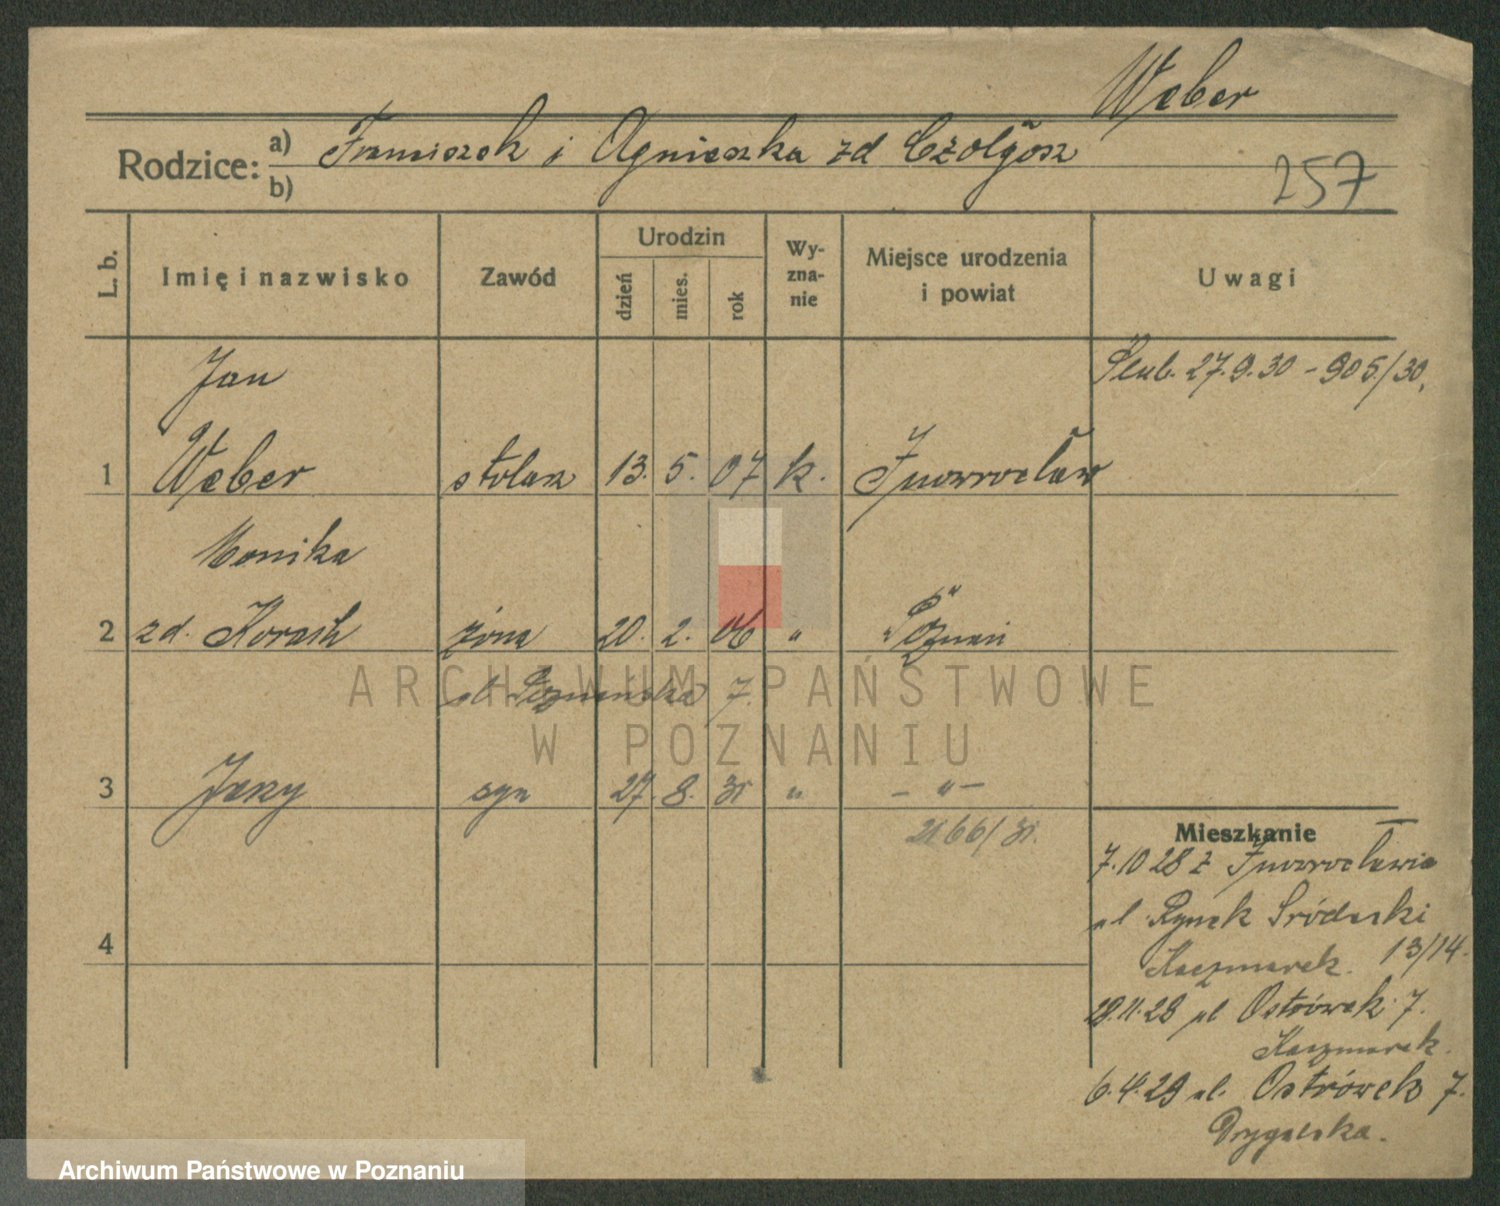 Weber
Rodzice: a) Franciszek i Agnieszka zd Czołgosz
b)
257
L. b.
Imię i nazwisko
Zawód
Urodzin
dzień
mies.
rok
Wy-
zna-
nie
Miejsce urodzenia
i powiat
Uwagi
Jan
Ślub. 27.9.30 - 905/30.
1 Weber stolarz 13. 5. 07 k. Inowrocław
Monika
2 zd. Korach żona 20. 2. 06 " Poznań
ul. Poznańska 7.
3 Jerzy syn 27. 8. 31 " - " -
2166/31.
4
Mieszkanie
7.10 28 z Inowrocławia
ul Rynek Śródecki
13/14.
Kaczmarek.
28.11.28 ul Ostrówek 7.
Kaczmarek.
6.4.29 ul. Ostrówek 7.
Drygalska.
ARCHIWUM PAŃSTWOWE
W POZNANIU
Archiwum Państwowe w Poznaniu